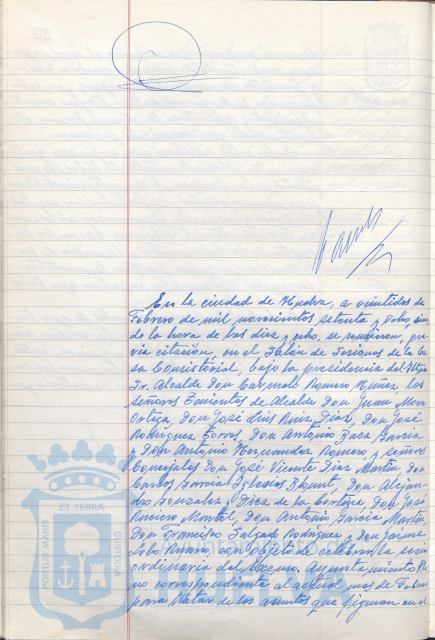 En la ciudad de Huelva, a veintidos de
Febrero de mil novecientos setenta y ocho, sien
do la hora de las diez y ocho, se reunieron, pre
via citación, en el Salón de Sesiones de la Ca
sa Consistorial, bajo la presidencia del Iltmo.
Sr. Alcalde Don Carmelo Romero Núñez los
señores Tenientes de Alcalde Don Juan Mora
Ortega, Don José Luis Ruiz Díaz, Don José
Rodríguez Torres, Don Antonio Baez García
y Don Antonio Hernandez Romero, y señores
Concejales Don José Vicente Díaz Martín, Don
Carlos García Iglesias Don Alejan
dro Gonzalez, Diez de la Cortina, Don José
Riviero Don Antonio García Martín,
Don Francisco Salgado Rodríguez y Don Jaime
con objeto de celebrar la sesión
ordinaria del Excmo. Ayuntamiento Ple
no correspondiente al actual mes de Febrero
para tratar de los asuntos que figuran en el
PORTUS MARIS
ET TERRÆ
CUSTODIA